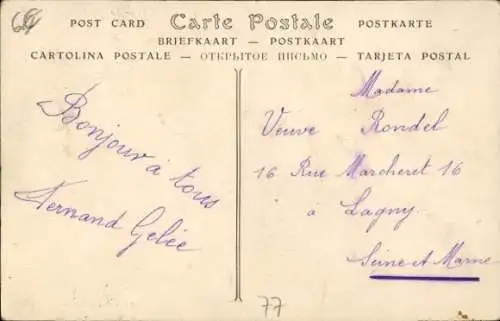 POST CARD Carte Postale POSTKARTE
BRIEFKAART — POSTKAART
CARTOLINA POSTALE — ОТКРЫТОЕ ПИСЬМО — TARJETA POSTAL
Bonjour à tous
Fernand Gelée
Madame
Veuve Rondel
16 Rue Marcheret 16
à Lagny
Seine et Marne
77